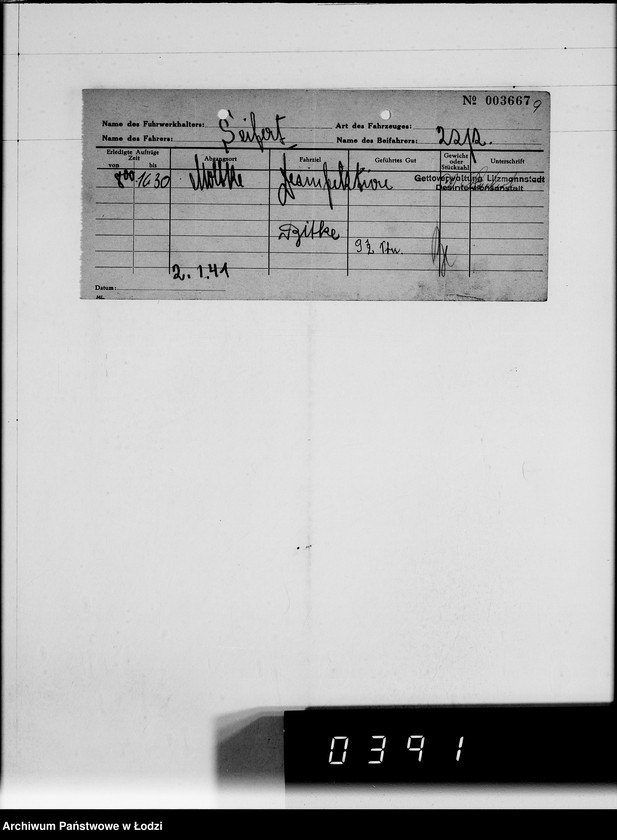 № 003667
Name des Fuhrwerkhalters: Seifert Art des Fahrzeuges:
Name des Fahrers: Name des Beifahrers:
Erledigte Aufträge
Zeit
von bis
Abgangsort
Fahrziel
Geführtes Gut
Gewicht
oder
Stückzahl
Unterschrift
8 00 16 30 Moltke Desinfektion
Gettoverwaltung Litzmannstadt
Desinfektionsanstalt
9½ Stu.
2.1.41
Datum:
0391
Archiwum Państwowe w Łodzi